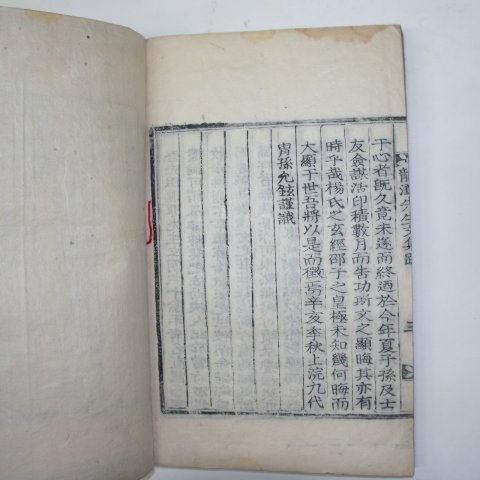 于心者旣久竟未遂而終逎於今年夏子孫及士
友僉謀活印積數月而告功所文之顯晦其亦有
時乎哉楊氏之玄經邵子之皇極未知幾何晦而
大顯于世吾將以是而徵焉辛亥季秋上浣九代
胄孫允鉉謹識
先生文集跋